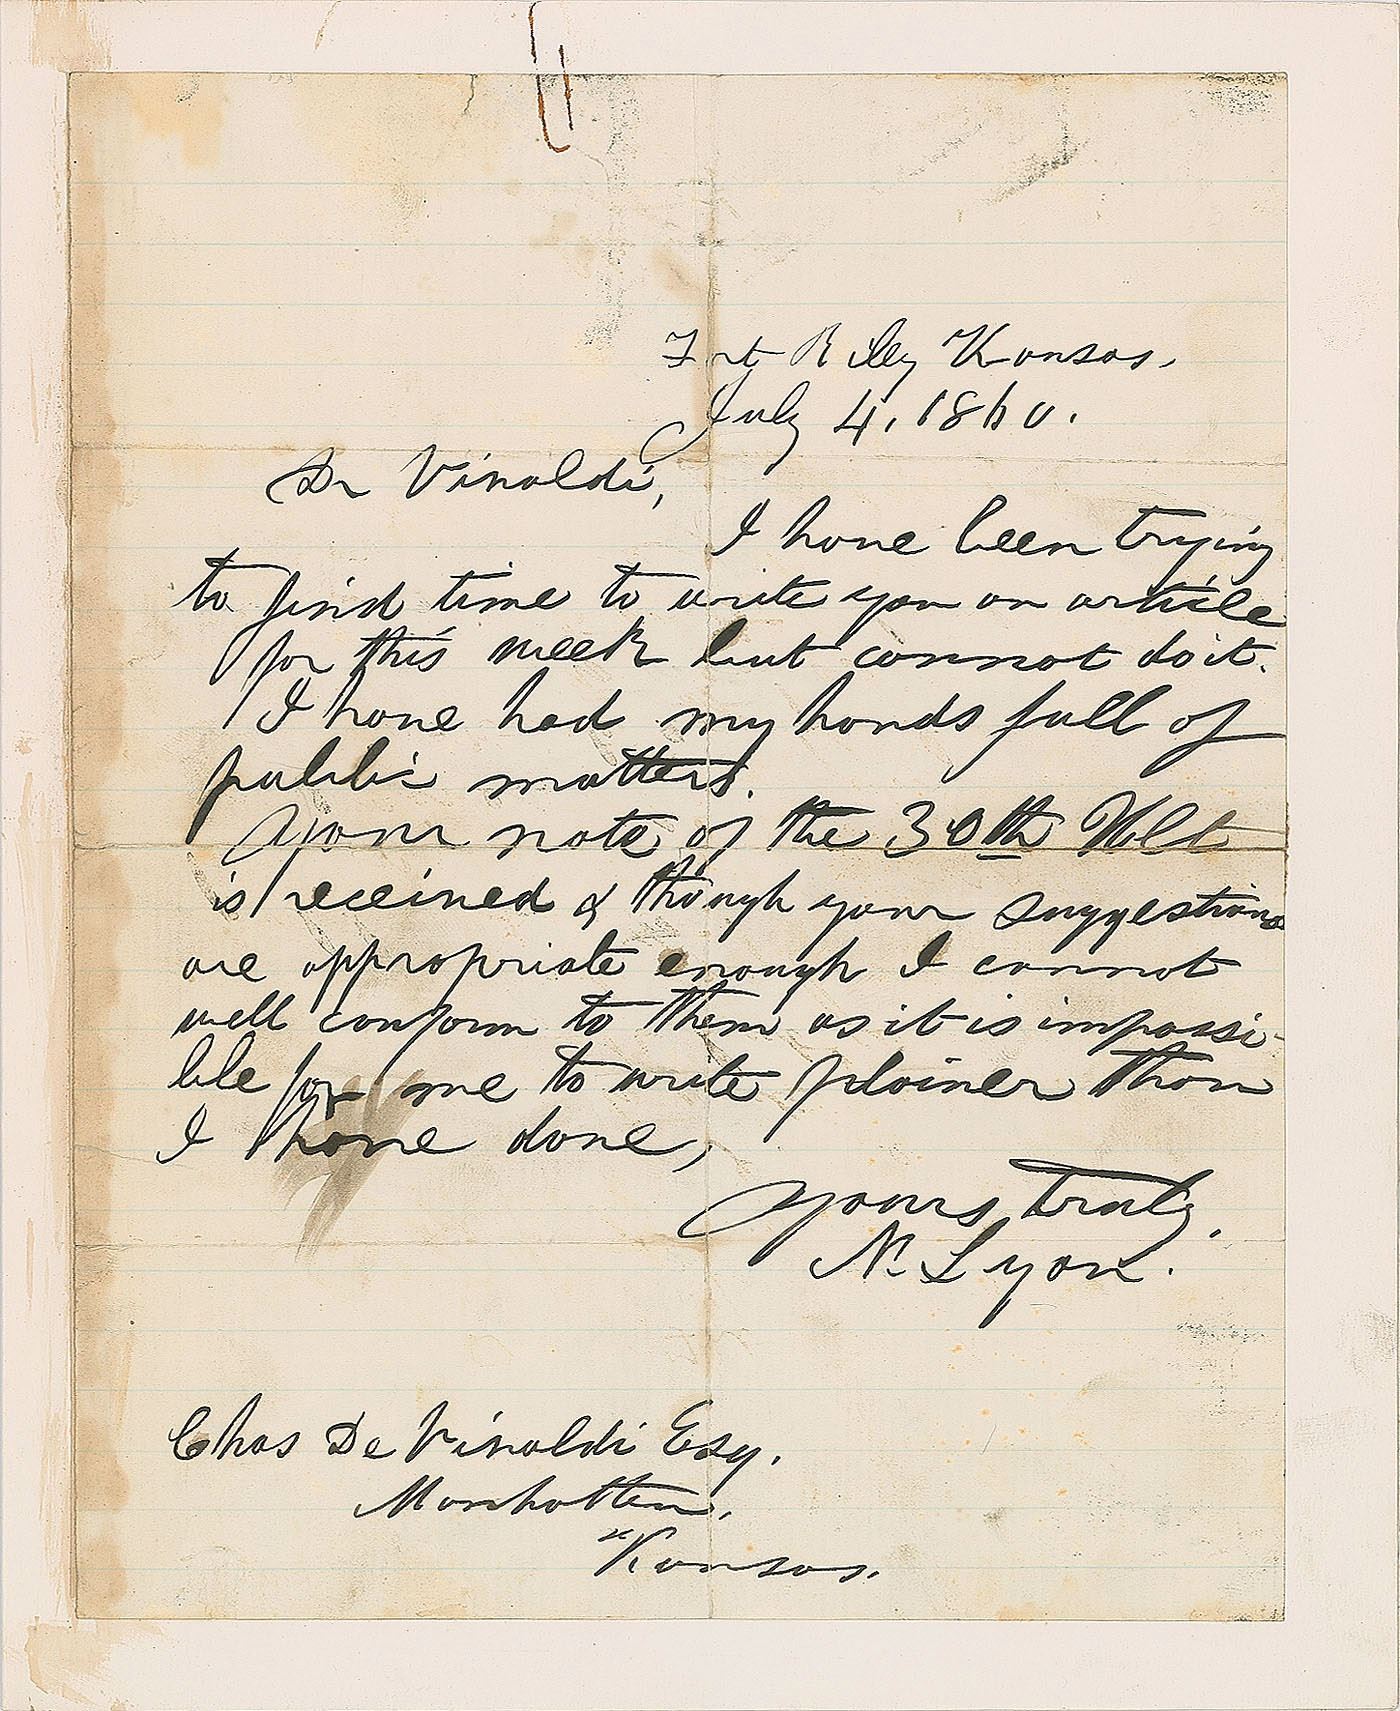 Fort Riley Kansas.
July 4, 1860.
Dr Vivaldi,
I have been trying
to find time to write you an article
for this week but cannot do it.
I have had my hands full of
public matters.
Your note of the 30th Ult
is received & though your suggestions
are appropriate enough I cannot
well conform to them as it is impossi-
ble for me to write plainer than
I have done,
Yours truly,
N. Lyon.
Chas De Vivaldi Esq.
Manhatten,
Kansas.